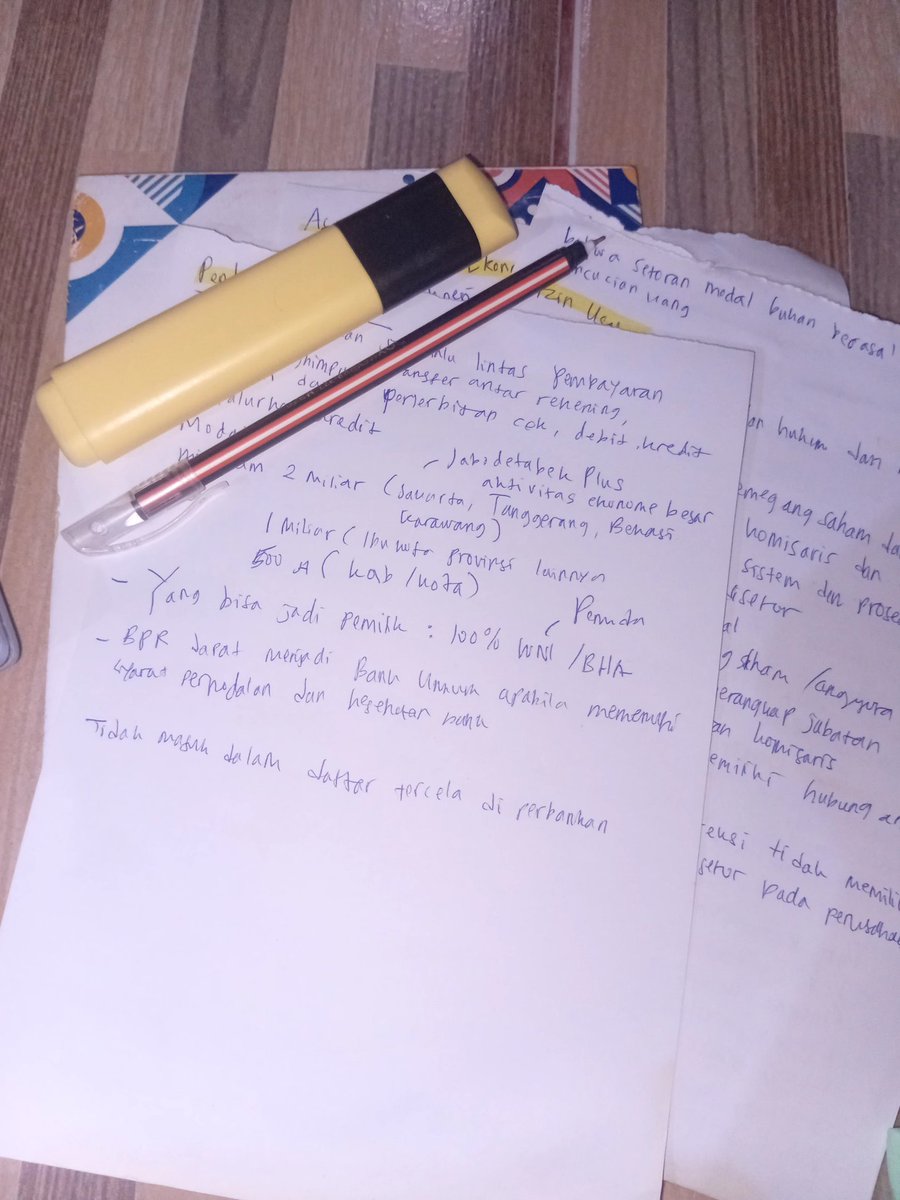 bahwa setoran modal bukan berasal
ncucian uang
Izin
lalu lintas pembayaran
transfer antar rekening,
penerbitan cek, debit, kredit
kredit
Moda
Jabodetabek Plus
aktivitas ekonome besar
2 miliar (Jakarta, Tanggerang, Bekasi
Karawang)
1 Miliar (Ibu kota provinsi lainnya
500 (kab/kota)
- Yang bisa jadi pemilik : 100% WNI /BHA
Pemda
- BPR dapat menjadi Bank Umum apabila memenuhi
syarat permodalan dan kesehatan bank
Tidak masuk dalam daftar tercela di perbankan
an hukum dan
emegang saham da
komisaris dan
sistem dan prose
esetor
al
g saham /anggota
erangkap jabatan
an komisaris
emiliki hubungan
tidak memili
setor pada perusaha